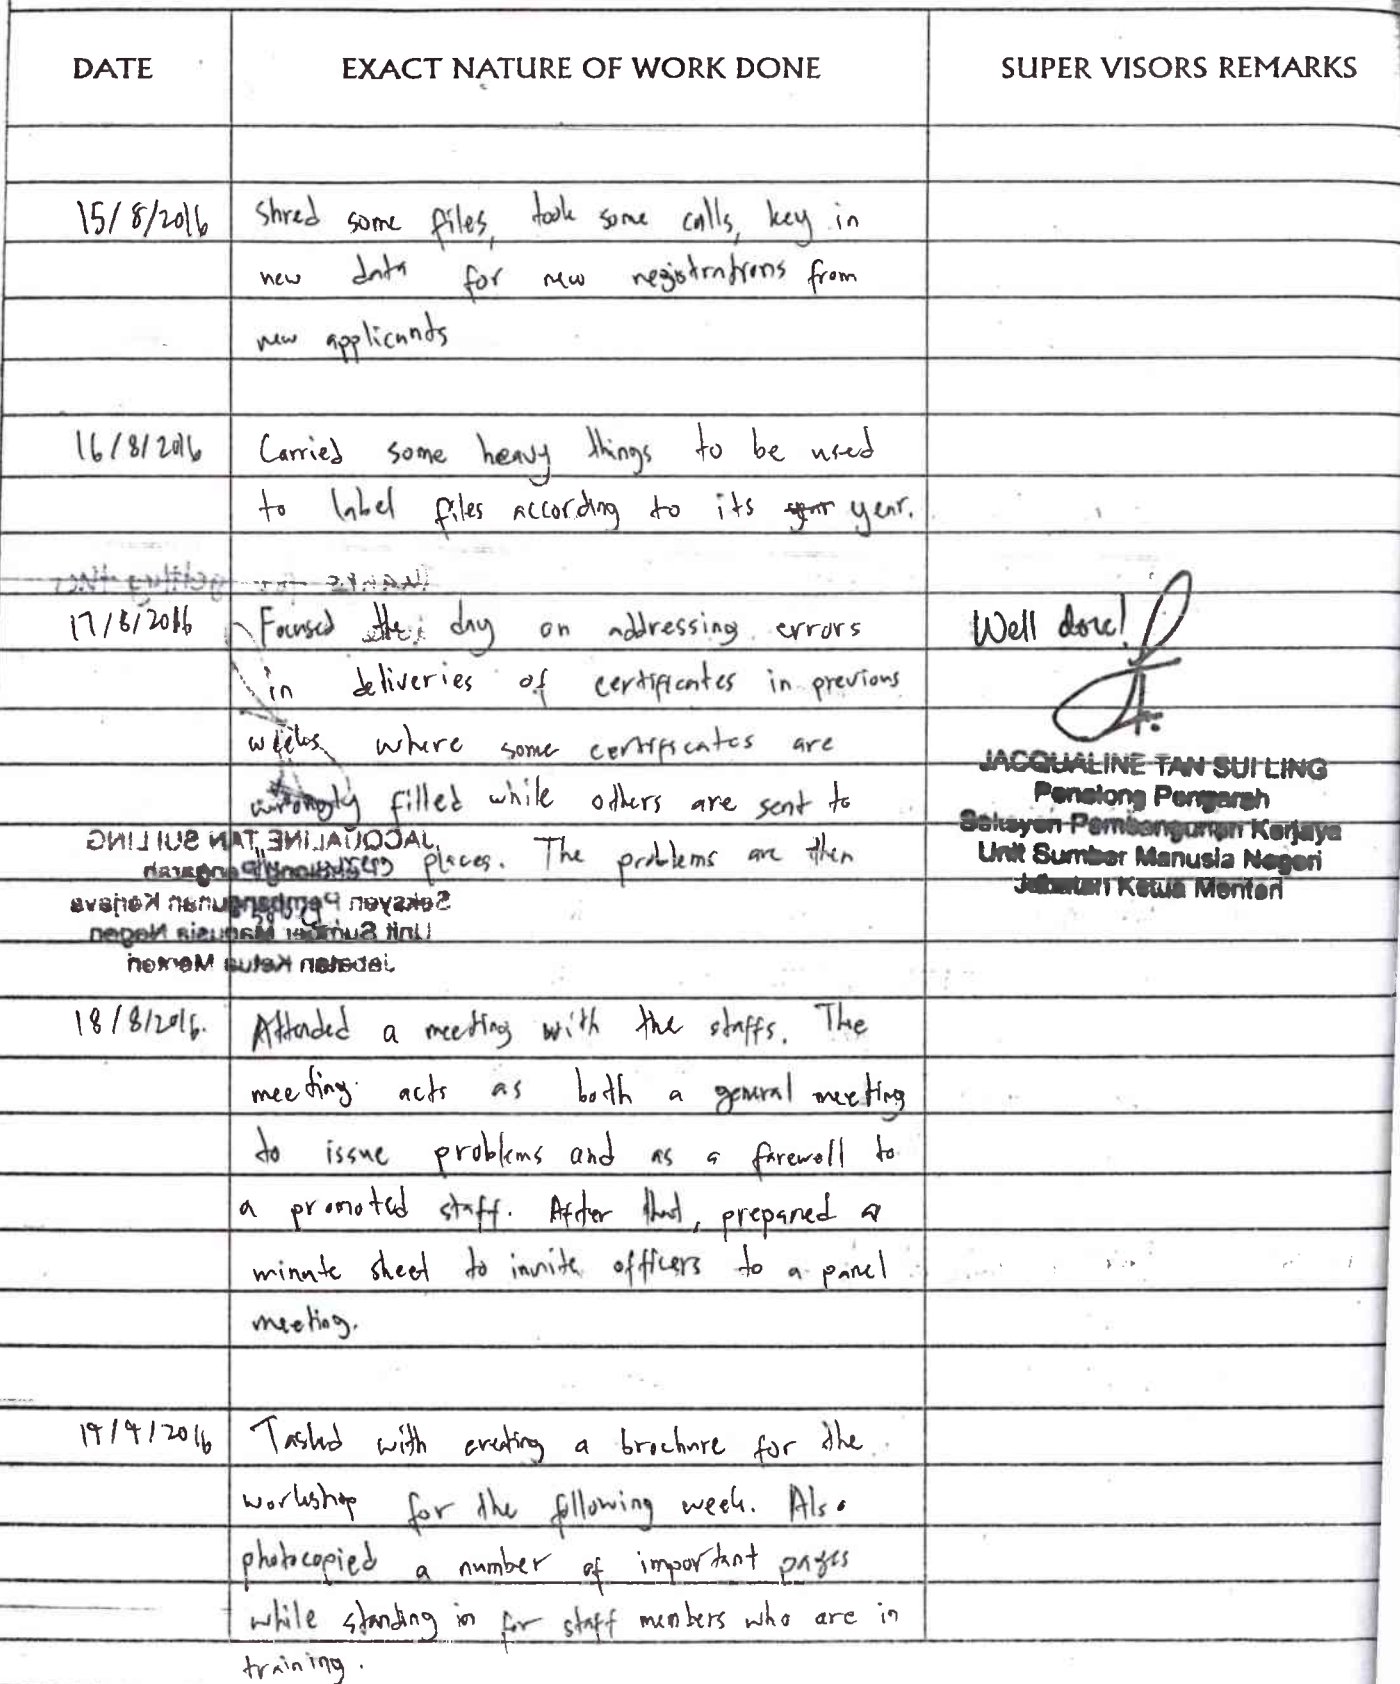 DATE EXACT NATURE OF WORK DONE SUPER VISORS REMARKS
15/8/2016 Shred some files, took some calls, key in
new data for new registrations from
new applicants
16/8/2016 Carried some heavy things to be used
to label files according to its year year.
17/8/2016 Focused the day on addressing errors Well done!
in deliveries of certificates in previous
weeks where some certificates are
JACQUALINE TAN SUI LING
wrongly filled while others are sent to Penolong Pengarah
Seksyen Pembangunan Kerjaya
places. The problems are then Unit Sumber Manusia Negeri
Jabatan Ketua Menteri
JACQUALINE TAN SUI LING
Penolong Pengarah
Seksyen Pembangunan Kerjaya
Unit Sumber Manusia Negeri
Jabatan Ketua Menteri
18/8/2016. Attended a meeting with the staffs. The
meeting acts as both a general meeting
to issue problems and as a farewell to
a promoted staff. After that, prepared a
minute sheet to invite officers to a panel
meeting.
19/9/2016 Tasked with creating a brochure for the
workshop for the following week. Also
photocopied a number of important pages
while standing in for staff members who are in
training.